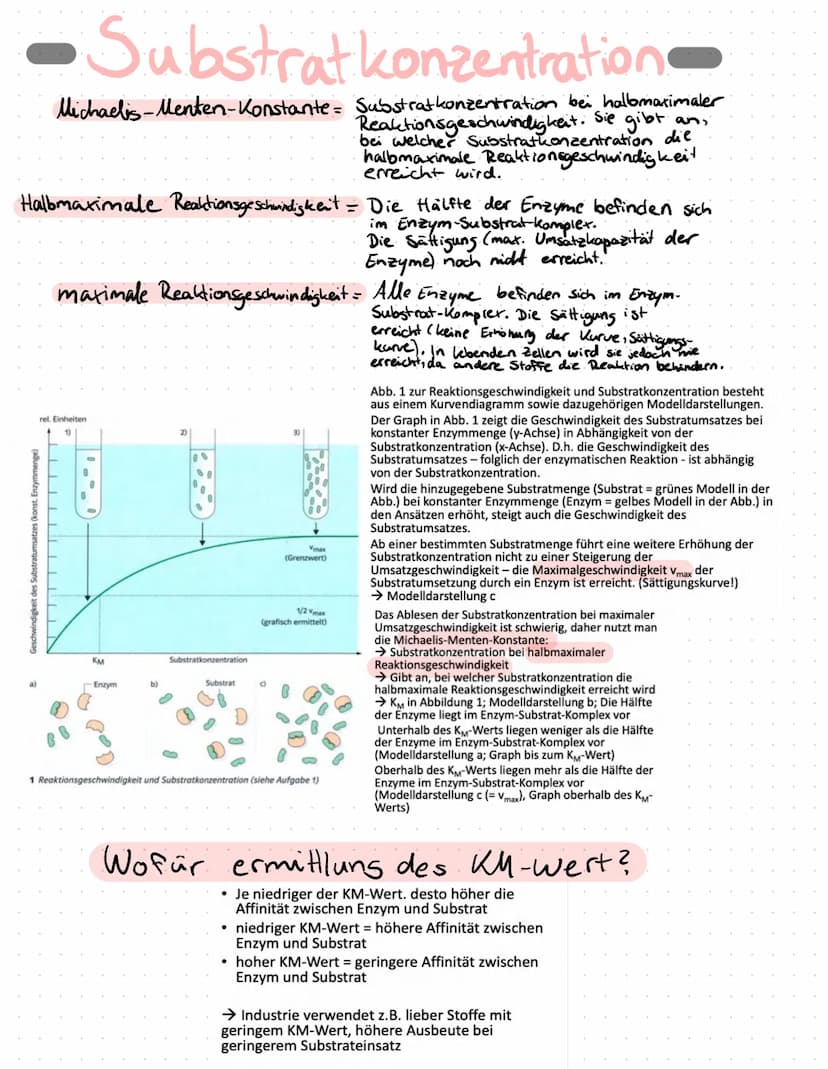 Substratkonzentration
Michaelis-Menten-Konstante = Substratkonzentration bei halbmaximaler
Reaktionsgeschwindigkeit. Sie gibt an,
bei welcher Substratkonzentration die
halbmaximale Reaktionsgeschwindigkeit
erreicht wird.
Halbmaximale Reaktionsgeschwindigkeit = Die Hälfte der Enzyme befinden sich
im Enzym-Substrat-Komplex.
Die Sättigung (max. Umsatzkapazität der
Enzyme) noch nicht erreicht.
maximale Reaktionsgeschwindigkeit = Alle Enzyme befinden sich im Enzym-
Substrat-Komplex. Die Sättigung ist
erreicht (keine Erhöhung der Kurve, Sättigungs-
kurve). In lebenden Zellen wird sie jedoch nie
erreicht, da andere Stoffe die Reaktion behindern.
rel. Einheiten
1)
2)
3)
Geschwindigkeit des Substratumsatzes (konst. Enzymmenge)
vmax
(Grenzwert)
1/2 vmax
(grafisch ermittelt)
KM
Substratkonzentration
a)
Enzym
b)
Substrat
c)
1 Reaktionsgeschwindigkeit und Substratkonzentration (siehe Aufgabe 1)
Abb. 1 zur Reaktionsgeschwindigkeit und Substratkonzentration besteht
aus einem Kurvendiagramm sowie dazugehörigen Modelldarstellungen.
Der Graph in Abb. 1 zeigt die Geschwindigkeit des Substratumsatz bei
konstanter Enzymmenge (y-Achse) in Abhängigkeit von der
Substratkonzentration (x-Achse). D.h. die Geschwindigkeit des
Substratumsatzes – folglich der enzymatischen Reaktion - ist abhängig
von der Substratkonzentration.
Wird die hinzugegebene Substratmenge (Substrat = grünes Modell in der
Abb.) bei konstanter Enzymmenge (Enzym = gelbes Modell in der Abb.) in
den Ansätzen erhöht, steigt auch die Geschwindigkeit des
Substratumsatzes.
Ab einer bestimmten Substratmenge führt eine weitere Erhöhung der
Substratkonzentration nicht zu einer Steigerung der
Umsatzgeschwindigkeit – die Maximalgeschwindigkeit vmax der
Substratumsetzung durch ein Enzym ist erreicht. (Sättigungskurve!)
→ Modelldarstellung c
Das Ablesen der Substratkonzentration bei maximaler
Umsatzgeschwindigkeit ist schwierig, daher nutzt man
die Michaelis-Menten-Konstante:
→ Substratkonzentration bei halbmaximaler
Reaktionsgeschwindigkeit
→ Gibt an, bei welcher Substratkonzentration die
halbmaximale Reaktionsgeschwindigkeit erreicht wird
→ KM in Abbildung 1; Modelldarstellung b; Die Hälfte
der Enzyme liegt im Enzym-Substrat-Komplex vor
Unterhalb des KM-Werts liegen weniger als die Hälfte
der Enzyme im Enzym-Substrat-Komplex vor
(Modelldarstellung a; Graph bis zum KM-Wert)
Oberhalb des KM-Werts liegen mehr als die Hälfte der
Enzyme im Enzym-Substrat-Komplex vor
(Modelldarstellung c (= vmax), Graph oberhalb des KM-
Werts)
Wofür ermittlung des KM-Wert?
• Je niedriger der KM-Wert. desto höher die
Affinität zwischen Enzym und Substrat
• niedriger KM-Wert = höhere Affinität zwischen
Enzym und Substrat
• hoher KM-Wert = geringere Affinität zwischen
Enzym und Substrat
→ Industrie verwendet z.B. lieber Stoffe mit
geringem KM-Wert, höhere Ausbeute bei
geringerem Substrateinsatz